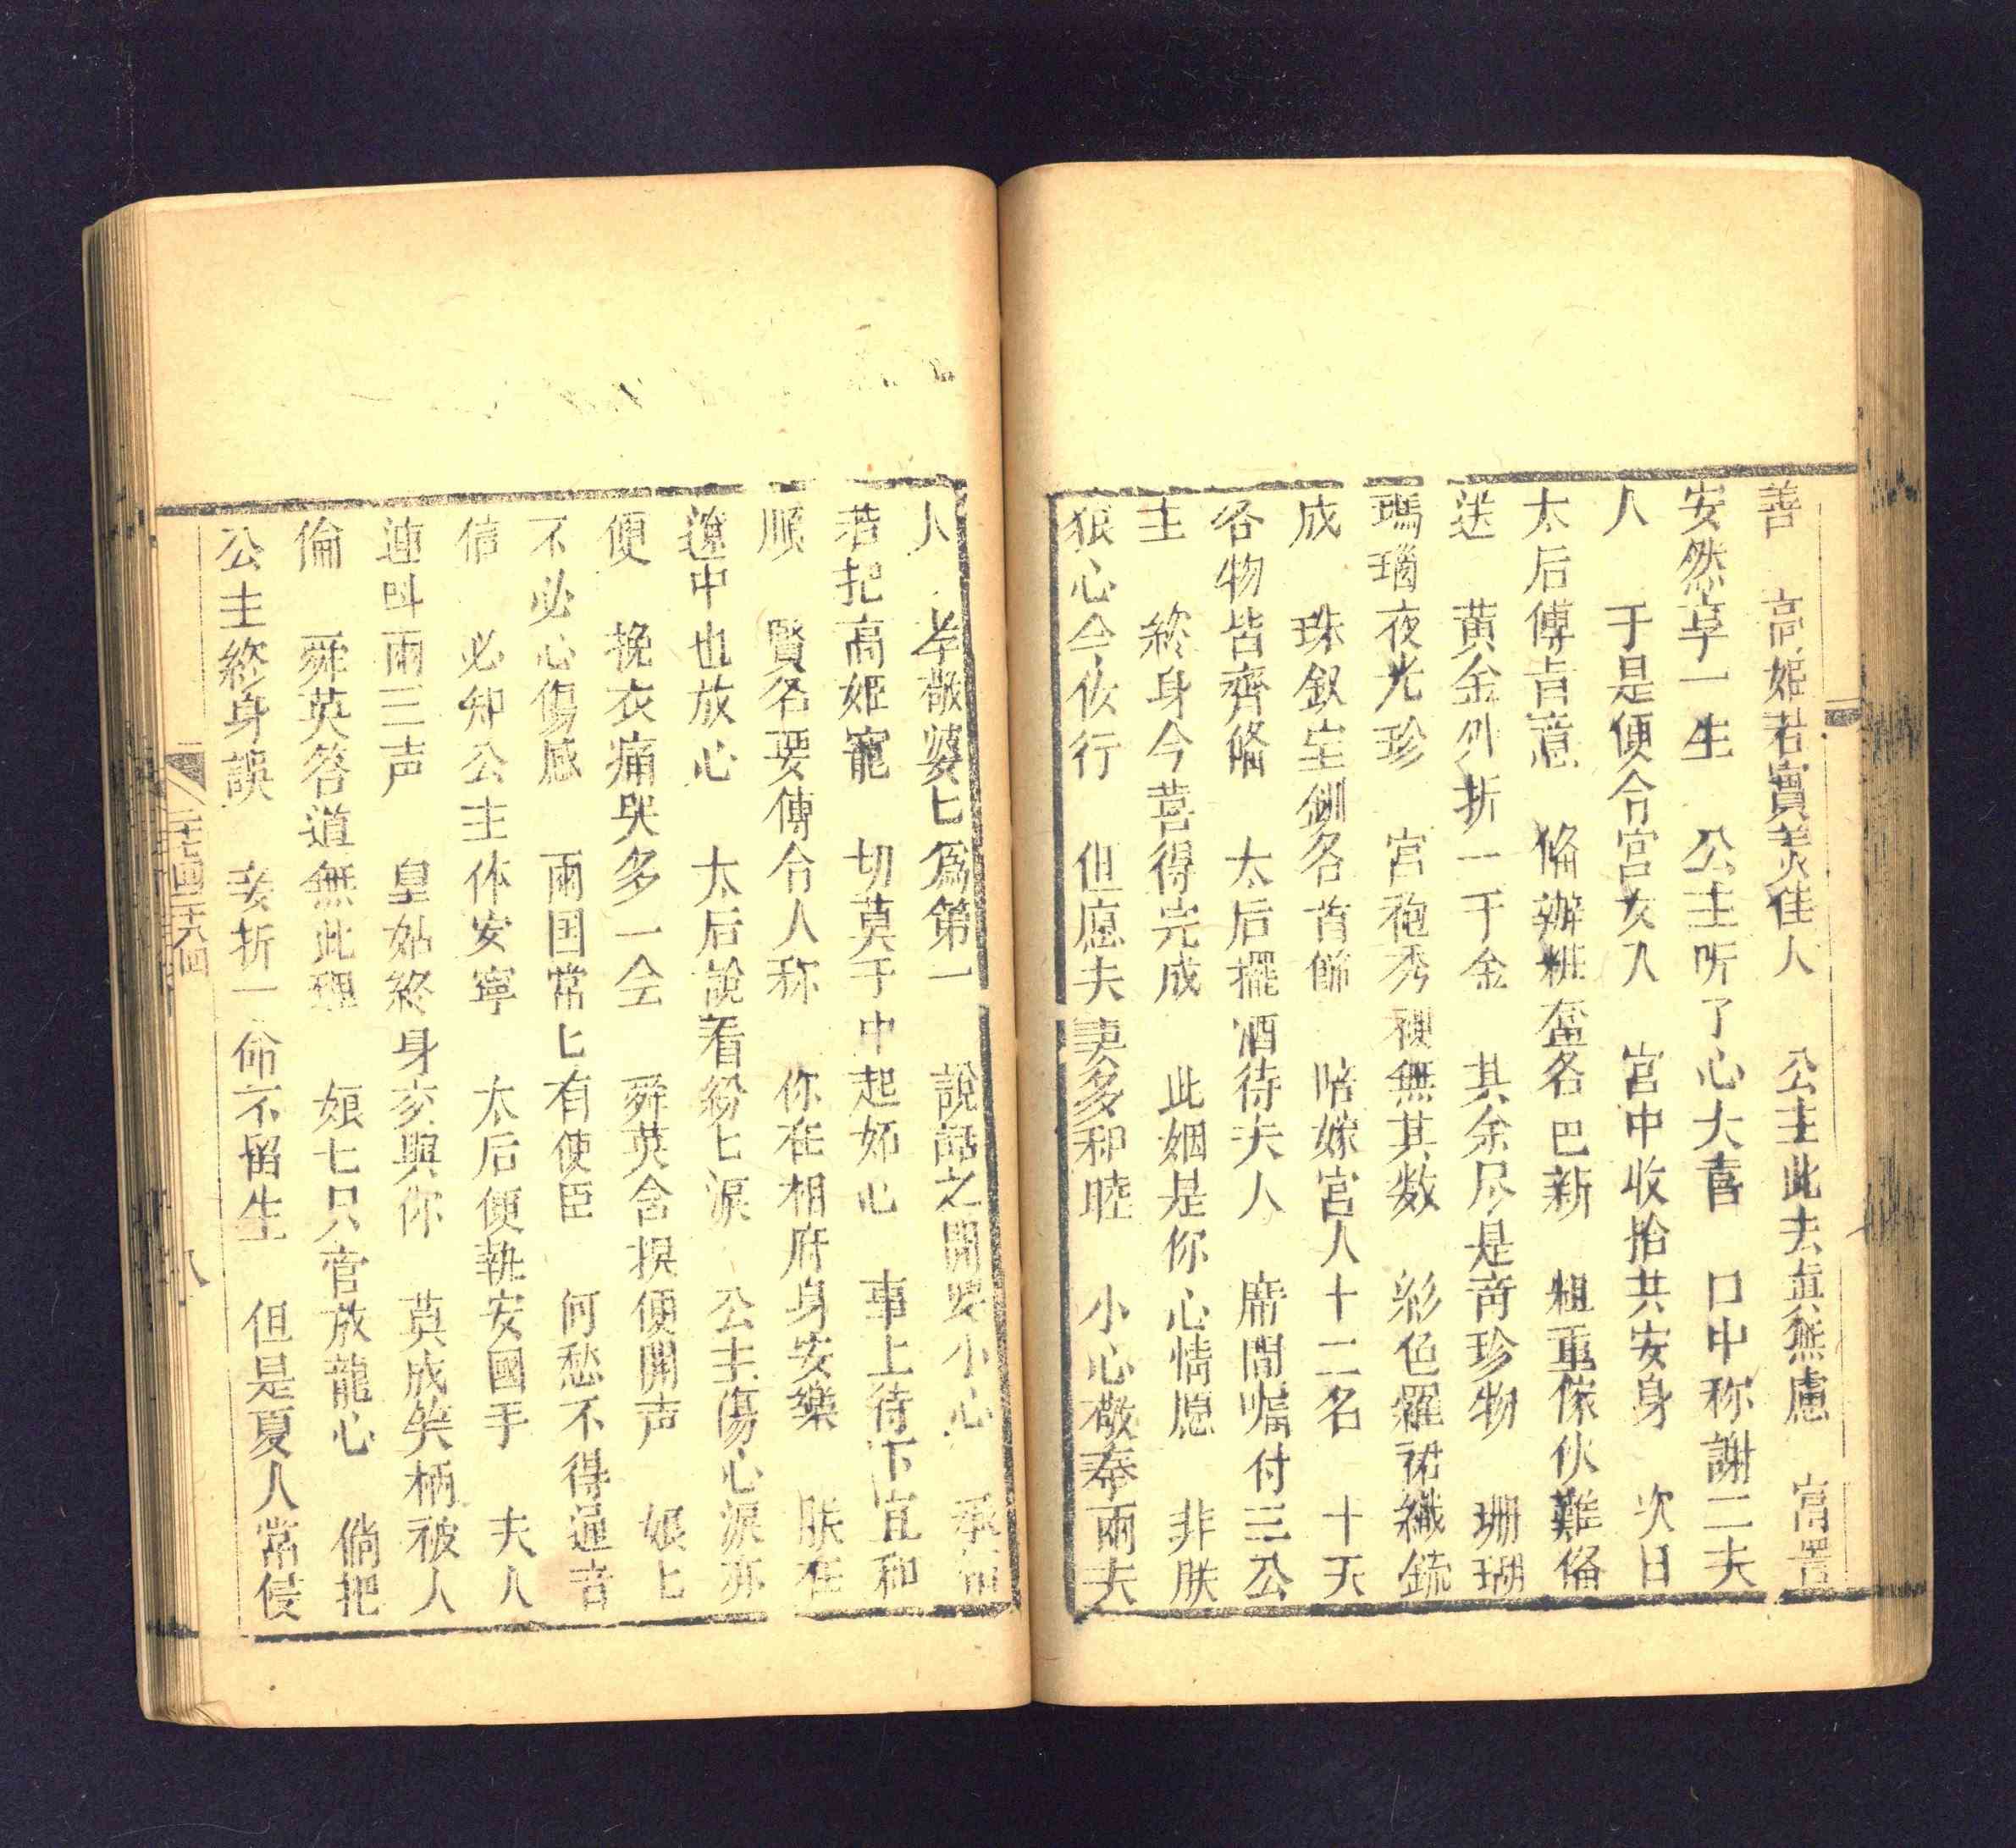 善　高姫君實美佳人　公主此去真無慮　富貴
安然享一生　公主听了心大喜　口中称謝二夫
人　于是便令宮女入　宮中收拾共安身　次日
太后傳旨意　俻辦粧奩各巴新　粗重傢伙難俻
送　黄金外折一千金　其余尽是奇珍物　珊瑚
瑪瑙夜光珍　宮袍秀襖無其数　彩色羅裙織錦
成　珠釵宝釧各首餙　陪嫁宮人十二名　十天
各物皆齊俻　太后擺酒待夫人　席間嘱付三公
主　終身今喜得完成　此姻是你心情愿　非朕
狠心令伩行　但愿夫妻多和睦　小心敬奉兩夫
人　孝敬婆匕為第一　說話之間要小心　承
若把高姬寵　切莫于中起妬心　事上待下宜和
順　賢名要傳令人称　你在相府身安樂　朕在
遼中也放心　太后說着紛匕淚　公主傷心淚亦
便　挽衣痛哭多一仝　舜英舍損便開声　娘匕
不必心傷感　兩国常匕有使臣　何愁不得通音
信　必知公主体安寧　太后便執安國手　夫人
連叫兩三声　皇姑終身交與你　莫成笑柄被人
倫　舜英答道無此理　娘七只管放龍心　倘把
公主終身誤　妾折一命不留生　但是夏人常侵
八